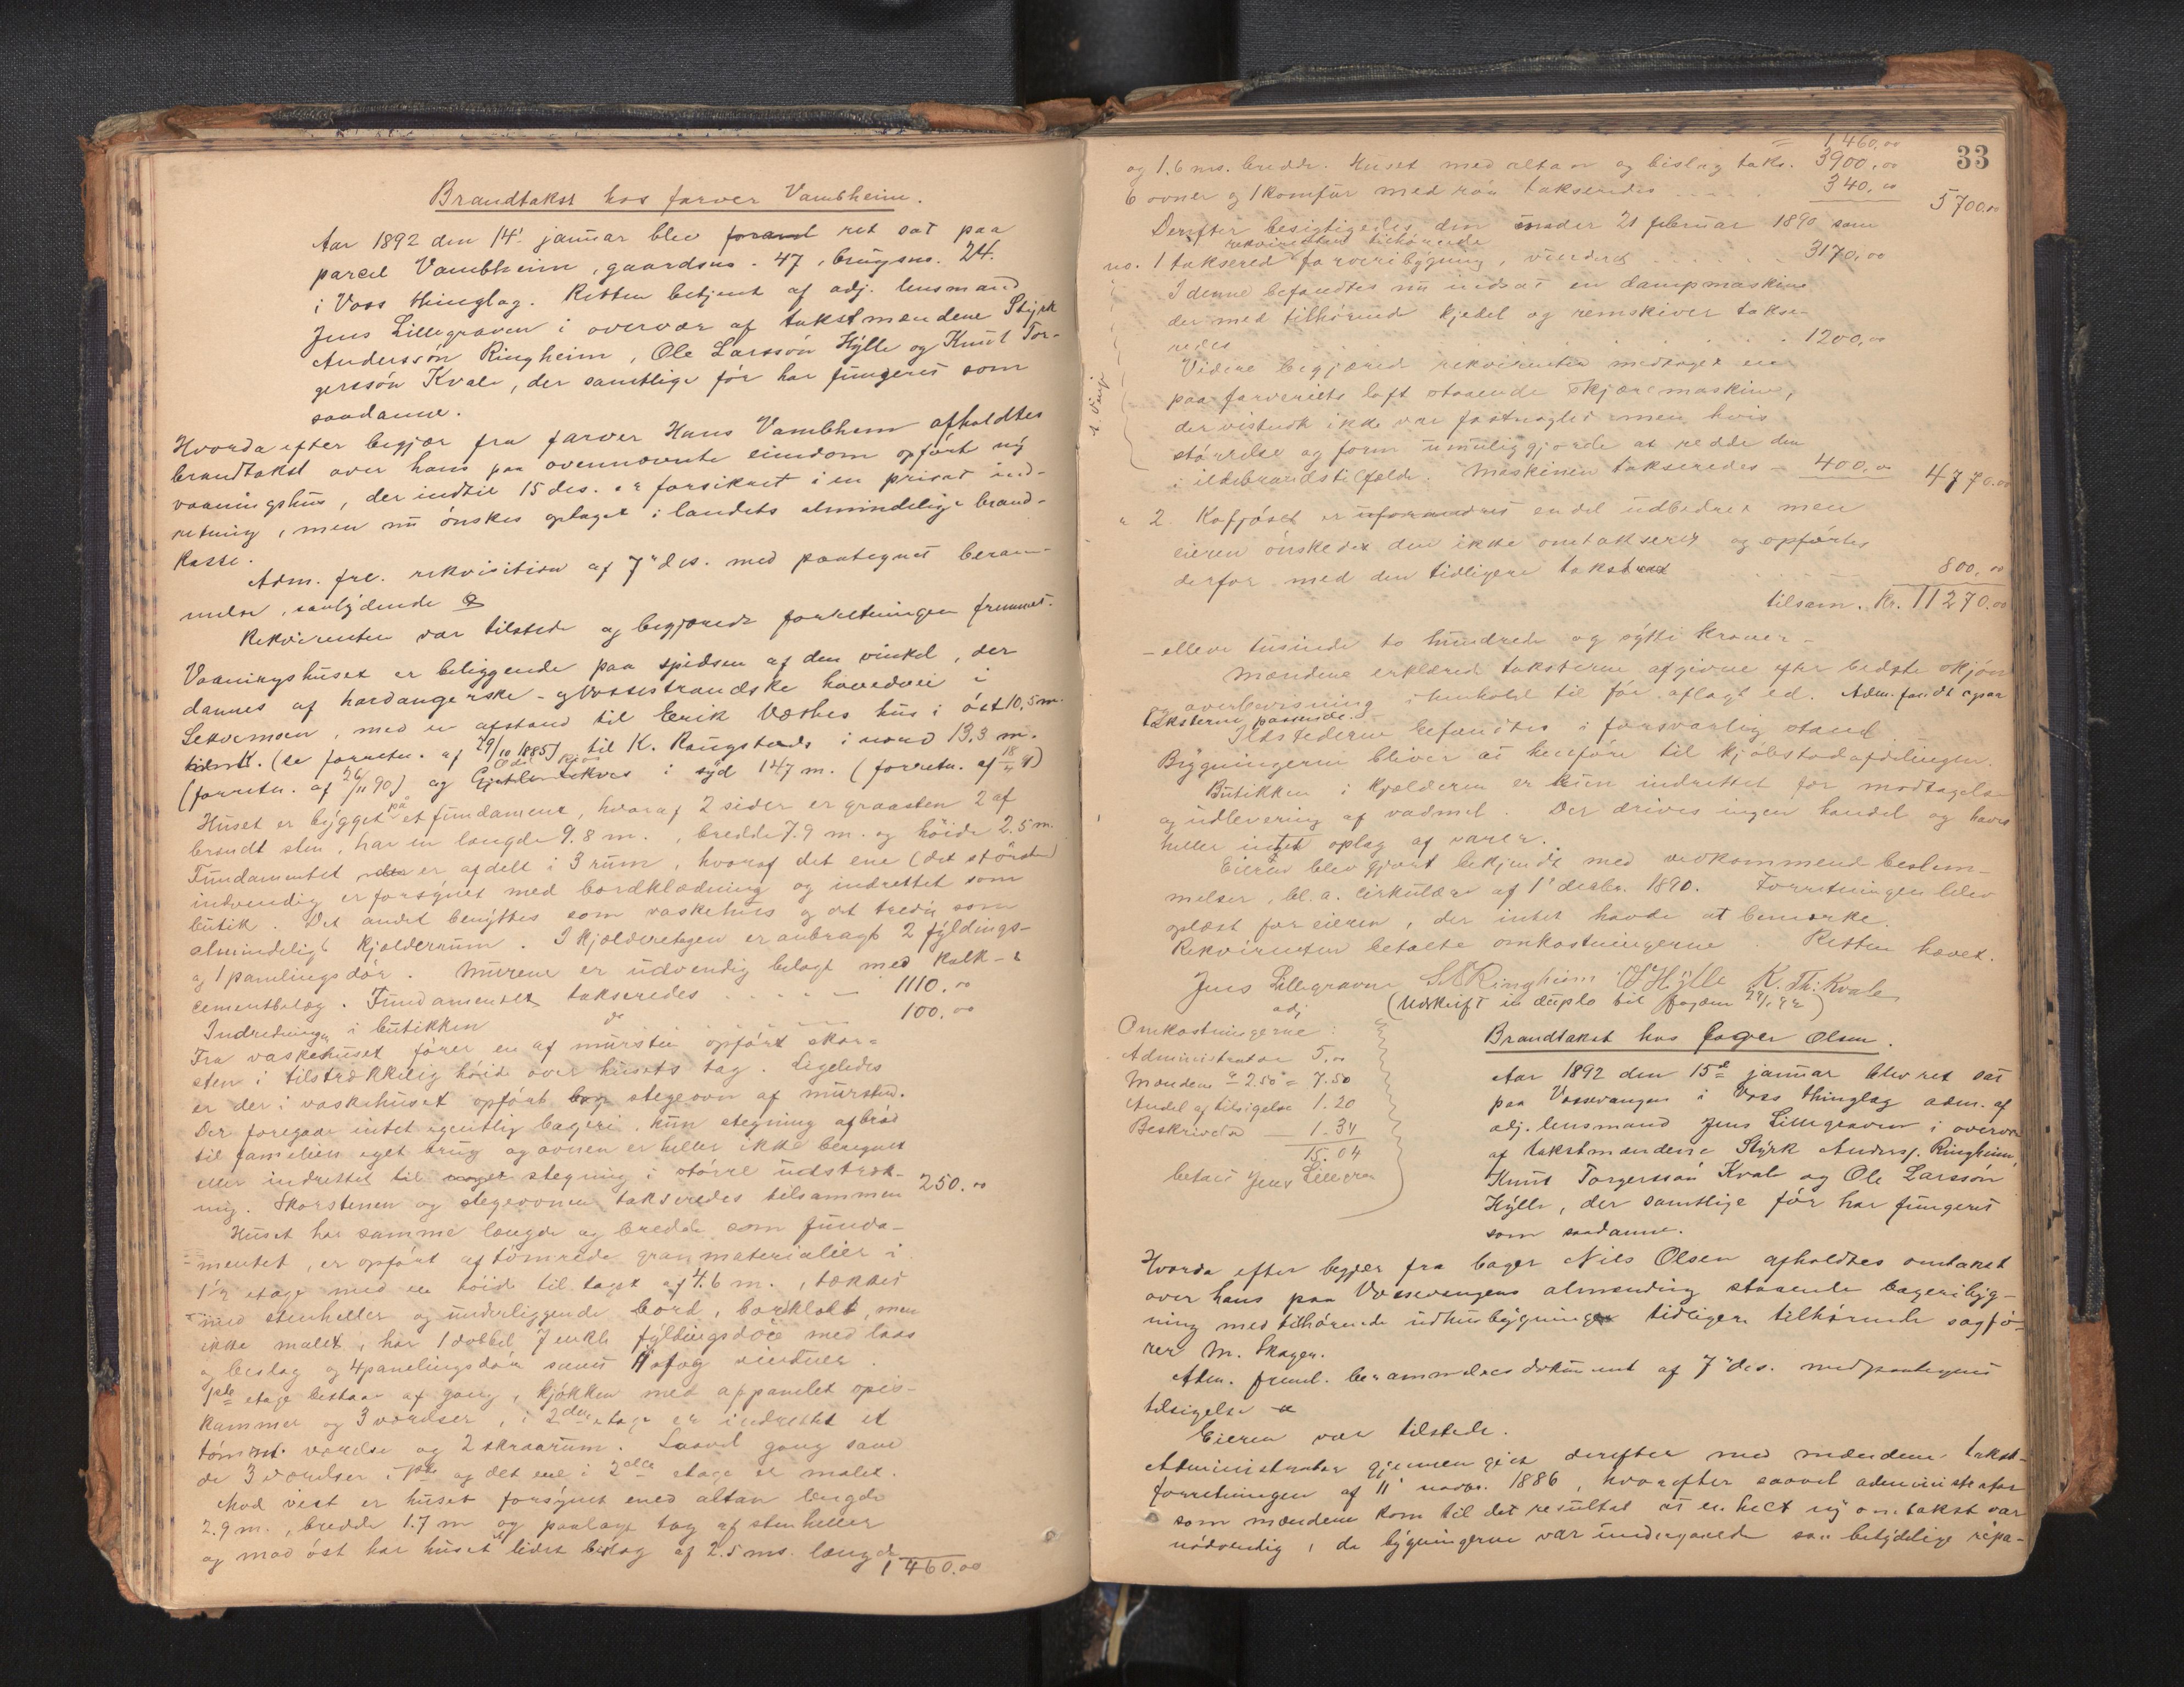 Brandtakst hos farver Vambheim.
Aar 1892 den 14' januar blev foranl ret sat paa
parcel Vambheim, gaardsno. 47, brugsno. 24.
i Voss thinglag. Retten betjent af adj. lensmand
Jens Lillegraven i overvær af takstmændene Styrk
Anderssøn Ringheim, Ole Larssøn Hylle og Knut Tor-
gerssøn Kvale, der samtlige før har fungeret som
saadanne.
Hvorda efter begjær fra farver Hans Vambheim afholdtes
brandtakst over hans paa ovennævnte eiendom opført ny
vaaningshus, der indtil 15 ds. er forsikret i en privat ind-
retning, men nu ønskes optaget i landets almindelige brand-
kasse.
Adm. fre. rekvisition af 7' ds. med paategnet beram-
melse, saalydende
Rekvirenten var tilstede og begjærede forretningen fremmet.
Vaaningshuset er beliggende paa spidsen af den vinkel, der
dannes af hardangerske- og Vossestrandske hovedvei i
Lekvemoen, med en afstand til Eirik Væthes hus i øst 10,5 m.
(se forretn. af 29/10 1885) til K. Rangstads i nord 13,3 m.
(forretn. af 26/11 90) og i syd 12,7 m. (forretn. af 18/4 9)
Huset er bygget på et fundament, hvoraf 2 sider er graasten 2 af
brændt sten, har en længde 9.8 m., bredde 7.9 m. og høide 2.5 m.
Fundamentet er afdelt i 3 rum, hvoraf det ene (det største)
indvendig er forsynet med bordklædning og indrettet som
butik. Det andet benyttes som vaskehus og det tredie som
almindeligt kjælderrum. I kjælderetagen er anbragt 2 fyldings-
og 1 panelingsdør. Murene er udvendig belagt med kalk- &
cementbelæg. Fundamentet takseredes 1110.00
Indredningen i butikken do 100.00
Fra vaskehuset fører en af mursten opført skor-
sten i tilstrækkelig høide over husets tag. Ligeledes
er der i vaskehuset opført stegeovn af mursten.
Der foregaar intet egentlig bageri, kun stegning af brød
til familiens eget brug og ovnen er heller ikke beregnet
eller indrettet til noget stegning i større udstræk-
ning. Skorstenen og stegeovnen takseredes tilsammen 250.00
Huset har samme længde og bredde som funda-
mentet, er opført af tømrede granmaterialier i
1½ etage med en høide til taget af 4.6 m., tækket
med stenheller og underliggende bord, bordklædt, men
ikke malet, har 1 dobbel 7 enkle fyldingsdøre med laas
og beslag og 4 panelingsdøre samt 11 fag vinduer.
1ste etage bestaar af gang, kjøkken med appanelet spis-
kammer og 3 værelser, i 2den etage er indrettet et
tømret værelse og 2 skraarum. Saavel gang som
de 3 værelser i 1ste og det ene i 2den etage er malet.
Mod vest er huset forsynet med altan længde
2.9 m., bredde 1.7 m og paalagt tag af stenheller
og mod øst har huset lidet bislag af 2.5 ms. længde
1460.00
33
1460.00
og 1.6 ms. bredde. Huset med altan og bislag taks. 3900.00
6 ovner og 1 komfur med rør takseredes 340.00
5700.00
Derefter besigtigedes den under 21 februar 1890 som
rekvirenten tilhørende
no. 1 taksered farveribygning, vurderet 3170.00
I denne befandtes nu indsat en dampmaskine
der med tilhørende kjedel og remskiver takse-
redes 1200.00
Videre begjæred rekvirenten medtaget en
paa farveriets loft staaende skjæremaskine,
der vistnok ikke var fastnaglet men hvis
størrelse og form umuliggjorde at redde den
i ildebrandstilfælde. Maskinen takseredes 400.00
4770.00
" 2 Kafjøset er uforandret endel udbedret men
eieren ønskede den ikke omtakseret og opførtes
derfor med den tidligere takst 800.00
tilsam. kr. 11270.00
- elleve tusinde to hundrede og sytti kroner -
Mændene erklæred taksterne afgivne efter bedste skjøn
og overbevisning i henhold til før aflagt ed. Adm. fandt ogsaa
taksterne passende.
Ildstederne befandtes i forsvarlig stand.
Bygningerne bliver at henføre til kjøbstadafdelingen.
Butikken i kjælderen er kun indrettet for modtagelse
og udlevering af vadmel. Der drives ingen handel og haves
heller intet oplag af varer.
Eieren blev gjort bekjendt med vedkommende bestem-
melser, bl. a. cirkulære af 1' decbr. 1890. Forretningen blev
oplæst for eieren, der intet havde at bemærke.
Rekvirenten betalte omkostningerne. Retten hævet.
Jens Lillegraven S A Ringheim O L Hylle K. Th. Kvale
adj.
(Udskrift in duplo til fogden 29/1 92)
Omkostningerne:
Administrator 5.00
Mændene a 2.50 = 7.50
Andel af tilsigelse 1.20
Beskrivelse 1.34
15.04
betalt Jens Lillegra
Brandtakst hos bager Olsen.
Aar 1892 den 15de januar blev ret sat
paa Vossevangen i Voss thinglag adm. af
adj. lensmand Jens Lillegraven i overvær
af takstmændene Styrk Anders. Ringheim,
Knut Torgerssøn Kvale og Ole Larssøn
Hylle, der samtlige før har fungeret
som saadanne.
Hvorda efter begjær fra bager Nils Olsen afholdtes omtakst
over hans paa Vossevangens almending staaende bageribyg-
ning med tilhørende udhusbygninger tidligere tilhørende sagfø-
rer M. Skagen.
Adm. freml. berammelsesdokument af 7' ds. med paategnet
tilsigelse
Eieren var tilstede.
Administrator gjennemgik derefter med mændene takst-
forretningen af 11' novbr. 1886, hvorefter saavel administrator
som mændene kom til det resultat at en helt ny omtakst var
nødvendig, da bygningerne var undergaaede saa betydelige repa-